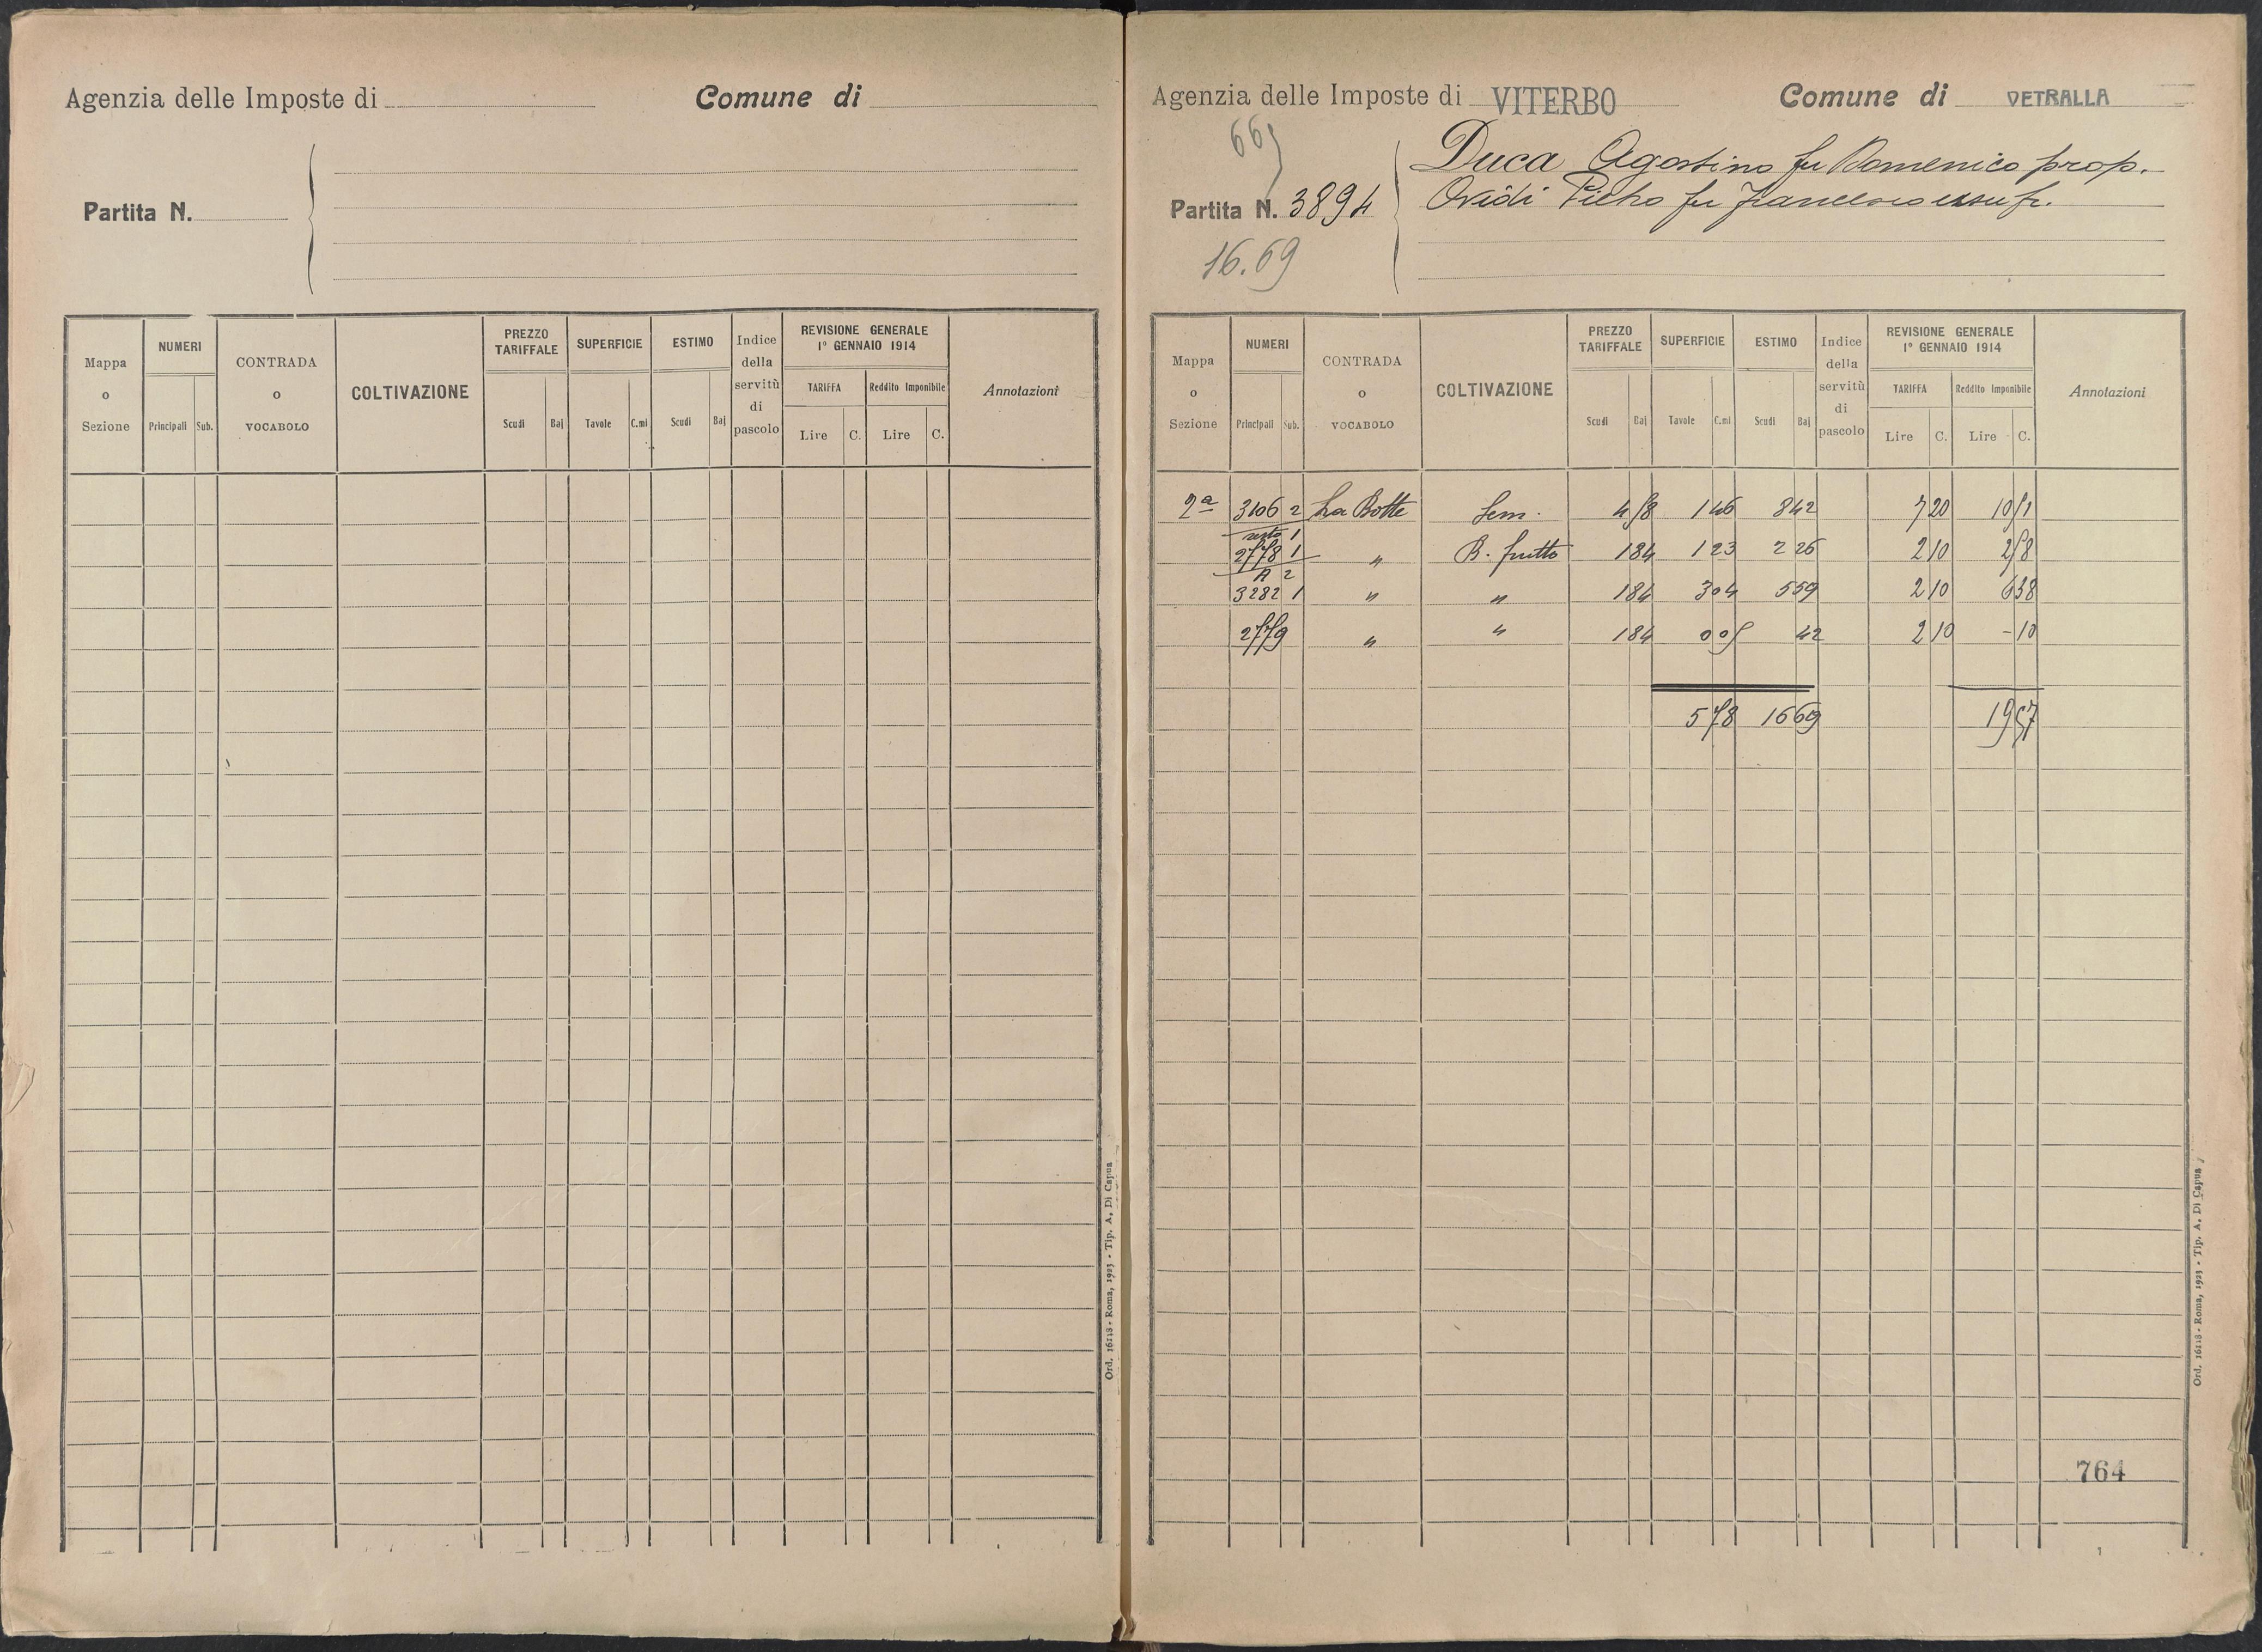 Agenzia delle Imposte di Comune di
Partita N.
Mappa o Sezione NUMERI Principali Sub. CONTRADA o VOCABOLO COLTIVAZIONE PREZZO TARIFFALE Scudi Baj SUPERFICIE Tavole C.mi ESTIMO Scudi Baj Indice della servitù di pascolo REVISIONE GENERALE 1° GENNAIO 1914 TARIFFA Lire C. Reddito Imponibile Lire C. Annotazioni
Ord. 16118 - Roma, 1923 - Tip. A. Di Capua
Agenzia delle Imposte di VITERBO Comune di VETRALLA
Duca Agostino fu Domenico prop.
Partita N. 3894 Ovidi Pietro fu Francesco usufr.
16.69
Mappa o Sezione NUMERI Principali Sub. CONTRADA o VOCABOLO COLTIVAZIONE PREZZO TARIFFALE Scudi Baj SUPERFICIE Tavole C.mi ESTIMO Scudi Baj Indice della servitù di pascolo REVISIONE GENERALE 1° GENNAIO 1914 TARIFFA Lire C. Reddito Imponibile Lire C. Annotazioni
2ª 3106 2 La Botte Sem. 146 842 7 20 10 51
resto 1
2778 1 " B. frutto 1 84 1 23 2 26 2 10 2 58
A 2
3282 1 " " 1 84 3 04 5 59 2 10 6 38
2779 " " 1 84 0 05 42 2 10 - 10
5 78 16 69 19 57
764
Ord. 16118 - Roma, 1923 - Tip. A. Di Capua